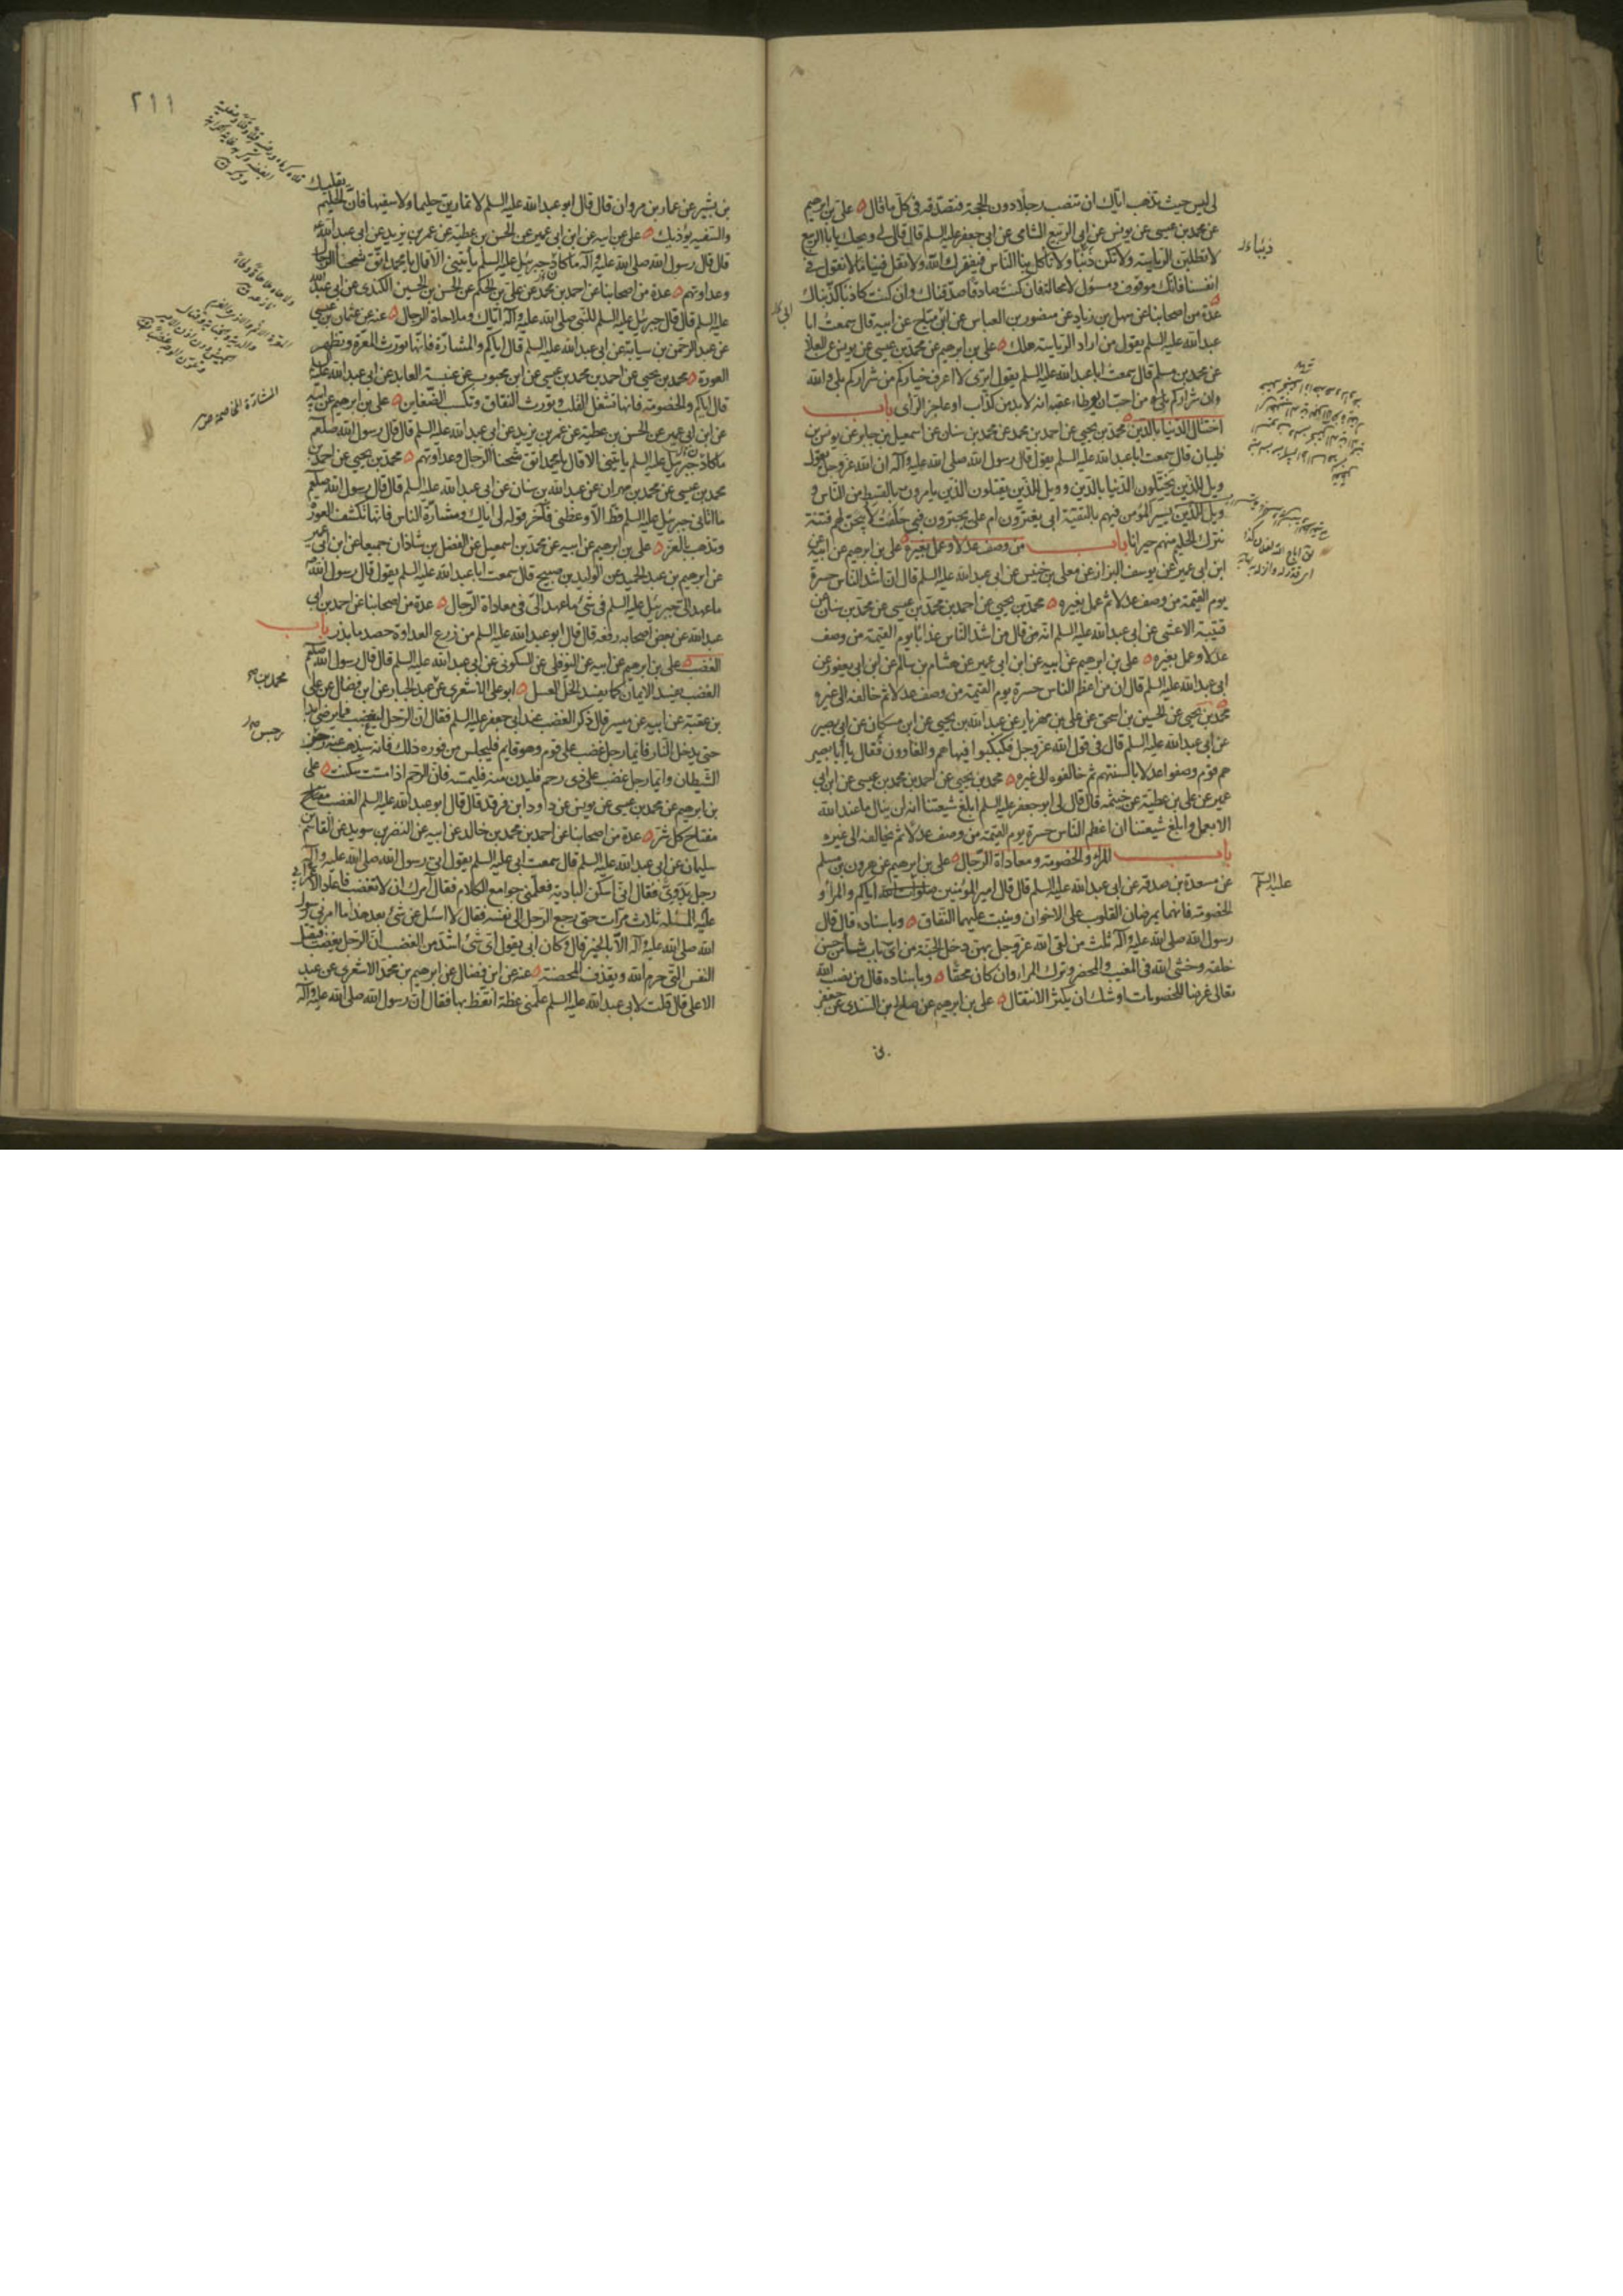 لى ليس حيث تذهب اياك ان تنصب رجلا دون الحجة فتصدقه فى كل ما قال علي بن ابرهيم
عن محمد بن عيسى عن يونس عن ابى الربيع الشامى عن ابى جعفر عليه السلم قال قال لى ويحك يا ابا الربيع
لا تطلبن الرياسة ولا تكن ذئبا ولا تأكل بنا الناس فيفقرك الله ولا تقل فينا ما لا نقول فى
انفسنا فانك موقوف ومسؤل لا محالة فان كنت صادقا صدقناك وان كنت كاذبا كذبناك
عدة من اصحابنا عن سهل بن زياد عن منصور بن العباس عن ابن مياح عن ابيه قال سمعت ابا
عبد الله عليه السلم يقول من اراد الرياسة هلك علي بن ابرهيم عن محمد بن عيسى عن يونس عن العلا
عن محمد بن مسلم قال سمعت ابا عبد الله عليه السلم يقول اترى لا اعرف خياركم من شراركم بلى والله
وان شراركم من احب ان يوطاء عقبه انه لا بد من كذاب او عاجز الراى باب
اختتال الدنيا بالدين محمد بن يحيى عن احمد بن محمد عن محمد بن سنان عن اسمعيل بن جابر عن يونس بن
ظبيان قال سمعت ابا عبد الله عليه السلم يقول قال رسول الله صلى الله عليه وآله ان الله عز وجل يقول
ويل للذين يختلون الدنيا بالدين وويل للذين يقتلون الذين يامرون بالقسط من الناس و
ويل للذين يسير المؤمن فيهم بالتقية ابى يغترون ام على يجترون فبى حلفت لاتيحن لهم فتنة
تترك الحليم منهم حيرانا باب من وصف عدلا وعمل بغيره علي بن ابرهيم عن ابيه عن
ابن ابى عمير عن يوسف البزاز عن معلى بن خنيس عن ابى عبد الله عليه السلم قال ان اشد الناس حسرة
يوم القيمة من وصف عدلا ثم عمل بغيره محمد بن يحيى عن احمد بن محمد بن عيسى عن محمد بن سنان عن
قتيبة الاعشى عن ابى عبد الله عليه السلم انه قال من اشد الناس عذابا يوم القيمة من وصف
عدلا وعمل بغيره علي بن ابرهيم عن ابيه عن ابن ابى عمير عن هشام بن سالم عن ابن ابى يعفور عن
ابى عبد الله عليه السلم قال ان من اعظم الناس حسرة يوم القيمة من وصف عدلا ثم خالفه الى غيره
محمد بن يحيى عن الحسين بن اسحق عن على بن مهزيار عن عبد الله بن يحيى عن ابن مسكان عن ابى بصير
عن ابى عبد الله عليه السلم قال فى قول الله عز وجل فكبكبوا فيها هم والغاوون فقال يا ابا بصير
هم قوم وصفوا عدلا بالسنتهم ثم خالفوه الى غيره محمد بن يحيى عن احمد بن محمد بن عيسى عن ابن ابى
عمير عن على بن عطية عن خيثمة قال قال لى ابو جعفر عليه السلم ابلغ شيعتنا انه لن ينال ما عند الله
الا بعمل وابلغ شيعتنا ان اعظم الناس حسرة يوم القيمة من وصف عدلا ثم يخالفه الى غيره
باب المراء والخصومة ومعاداة الرجال علي بن ابرهيم عن هرون بن مسلم
عن مسعدة بن صدقة عن ابى عبد الله عليه السلم قال قال امير المؤمنين اياكم والمراء و
الخصومة فانهما يمرضان القلوب على الاخوان وينبت عليهما النفاق وباسناده قال قال
رسول الله صلى الله عليه وآله ثلث من لقى الله عز وجل بهن دخل الجنة من اى باب شاء من حسن
خلقه وخشى الله فى المغيب والمحضر وترك المراء وان كان محقا وباسناده قال من نصب الله
تعالى غرضا للخصومات اوشك ان يكثر الانتقال علي بن ابرهيم عن صالح بن السندى عن جعفر
عليه السلم
٢١١
بن بشير عن عمار بن مروان قال قال ابو عبد الله عليه السلم لا تمارين حليما ولا سفيها فان الحليم يقليك
والسفيه يؤذيك علي عن ابيه عن ابن ابى عمير عن الحسن بن عطية عن عمر بن يزيد عن ابى عبد الله
قال قال رسول الله صلى الله عليه وآله ما كاد جبرئيل عليه السلم يأتينى الا قال يا محمد اتق شحناء الرجال
وعداوتهم عدة من اصحابنا عن احمد بن محمد عن على بن الحكم عن الحسن بن الحسين الكندى عن ابى عبد الله
عليه السلم قال قال جبرئيل عليه السلم للنبى صلى الله عليه وآله اياك وملاحاة الرجال عنه عن عثمان بن عيسى
عن عبد الرحمن بن سيابة عن ابى عبد الله عليه السلم قال اياكم والمشارة فانها تورث المعرة وتظهر
العورة محمد بن يحيى عن احمد بن محمد بن عيسى عن ابن محبوب عن عنبسة العابد عن ابى عبد الله عليه
قال اياكم والخصومة فانها تشغل القلب وتورث النفاق وتكسب الضغاين علي بن ابرهيم عن ابيه
عن ابن ابى عمير عن الحسن بن عطية عن عمر بن يزيد عن ابى عبد الله عليه السلم قال قال رسول الله صلعم
ما كاد جبرئيل عليه السلم يأتينى الا قال يا محمد اتق شحناء الرجال وعداوتهم محمد بن يحيى عن احمد بن
محمد بن عيسى عن محمد بن مهران عن عبد الله بن سنان عن ابى عبد الله عليه السلم قال قال رسول الله صلعم
ما اتانى جبرئيل عليه السلم قط الا وعظنى فآخر قوله لى اياك ومشارة الناس فانها تكشف العورة
وتذهب بالعز علي بن ابرهيم عن ابيه عن محمد بن اسمعيل عن الفضل بن شاذان جميعا عن ابن ابى عمير
عن ابرهيم بن عبد الحميد عن الوليد بن صبيح قال سمعت ابا عبد الله عليه السلم يقول قال رسول الله
ما عهد الى جبرئيل عليه السلم فى شئ ما عهد الى فى معاداة الرجال عدة من اصحابنا عن احمد بن ابى
عبد الله عن بعض اصحابه رفعه قال قال ابو عبد الله عليه السلم من زرع العداوة حصد ما بذر باب
الغضب علي بن ابرهيم عن ابيه عن النوفلى عن السكونى عن ابى عبد الله عليه السلم قال قال رسول الله صلعم
الغضب يفسد الايمان كما يفسد الخل العسل ابو على الاشعرى عن عبد الجبار عن ابن فضال عن على
بن عقبة عن ابيه عن ميسر قال ذكر الغضب عند ابى جعفر عليه السلم فقال ان الرجل ليغضب فما يرضى ابدا
حتى يدخل النار فايما رجل غضب على قوم وهو قايم فليجلس من فوره ذلك فانه سيذهب عنه رجز
الشيطان وايما رجل غضب على ذى رحم فليدن منه فليمسه فان الرحم اذا مست سكنت علي
بن ابرهيم عن محمد بن عيسى عن يونس عن داود بن فرقد قال قال ابو عبد الله عليه السلم الغضب مفتاح
مفتاح كل شر عدة من اصحابنا عن احمد بن محمد بن خالد عن ابيه عن النضر بن سويد عن القاسم بن
سليمان عن ابى عبد الله عليه السلم قال سمعت ابى عليه السلم يقول اتى رسول الله صلى الله عليه وآله
رجل بدوى فقال انى اسكن البادية فعلمنى جوامع الكلام فقال آمرك ان لا تغضب فاعاد الاعرابى
عليه المسئلة ثلاث مرات حتى رجع الرجل الى نفسه فقال لا اسئل عن شئ بعد هذا ما امرنى رسول
الله صلى الله عليه وآله الا بالخير قال وكان ابى يقول اى شئ اشد من الغضب ان الرجل يغضب فيقتل
النفس التى حرم الله ويقذف المحصنة عنه عن ابن فضال عن ابرهيم بن محمد الاشعرى عن عبد
الاعلى قال قلت لابى عبد الله عليه السلم علمنى عظة اتعظ بها فقال ان رسول الله صلى الله عليه وآله
المشارة المخاصمة
محمد بن
رجس